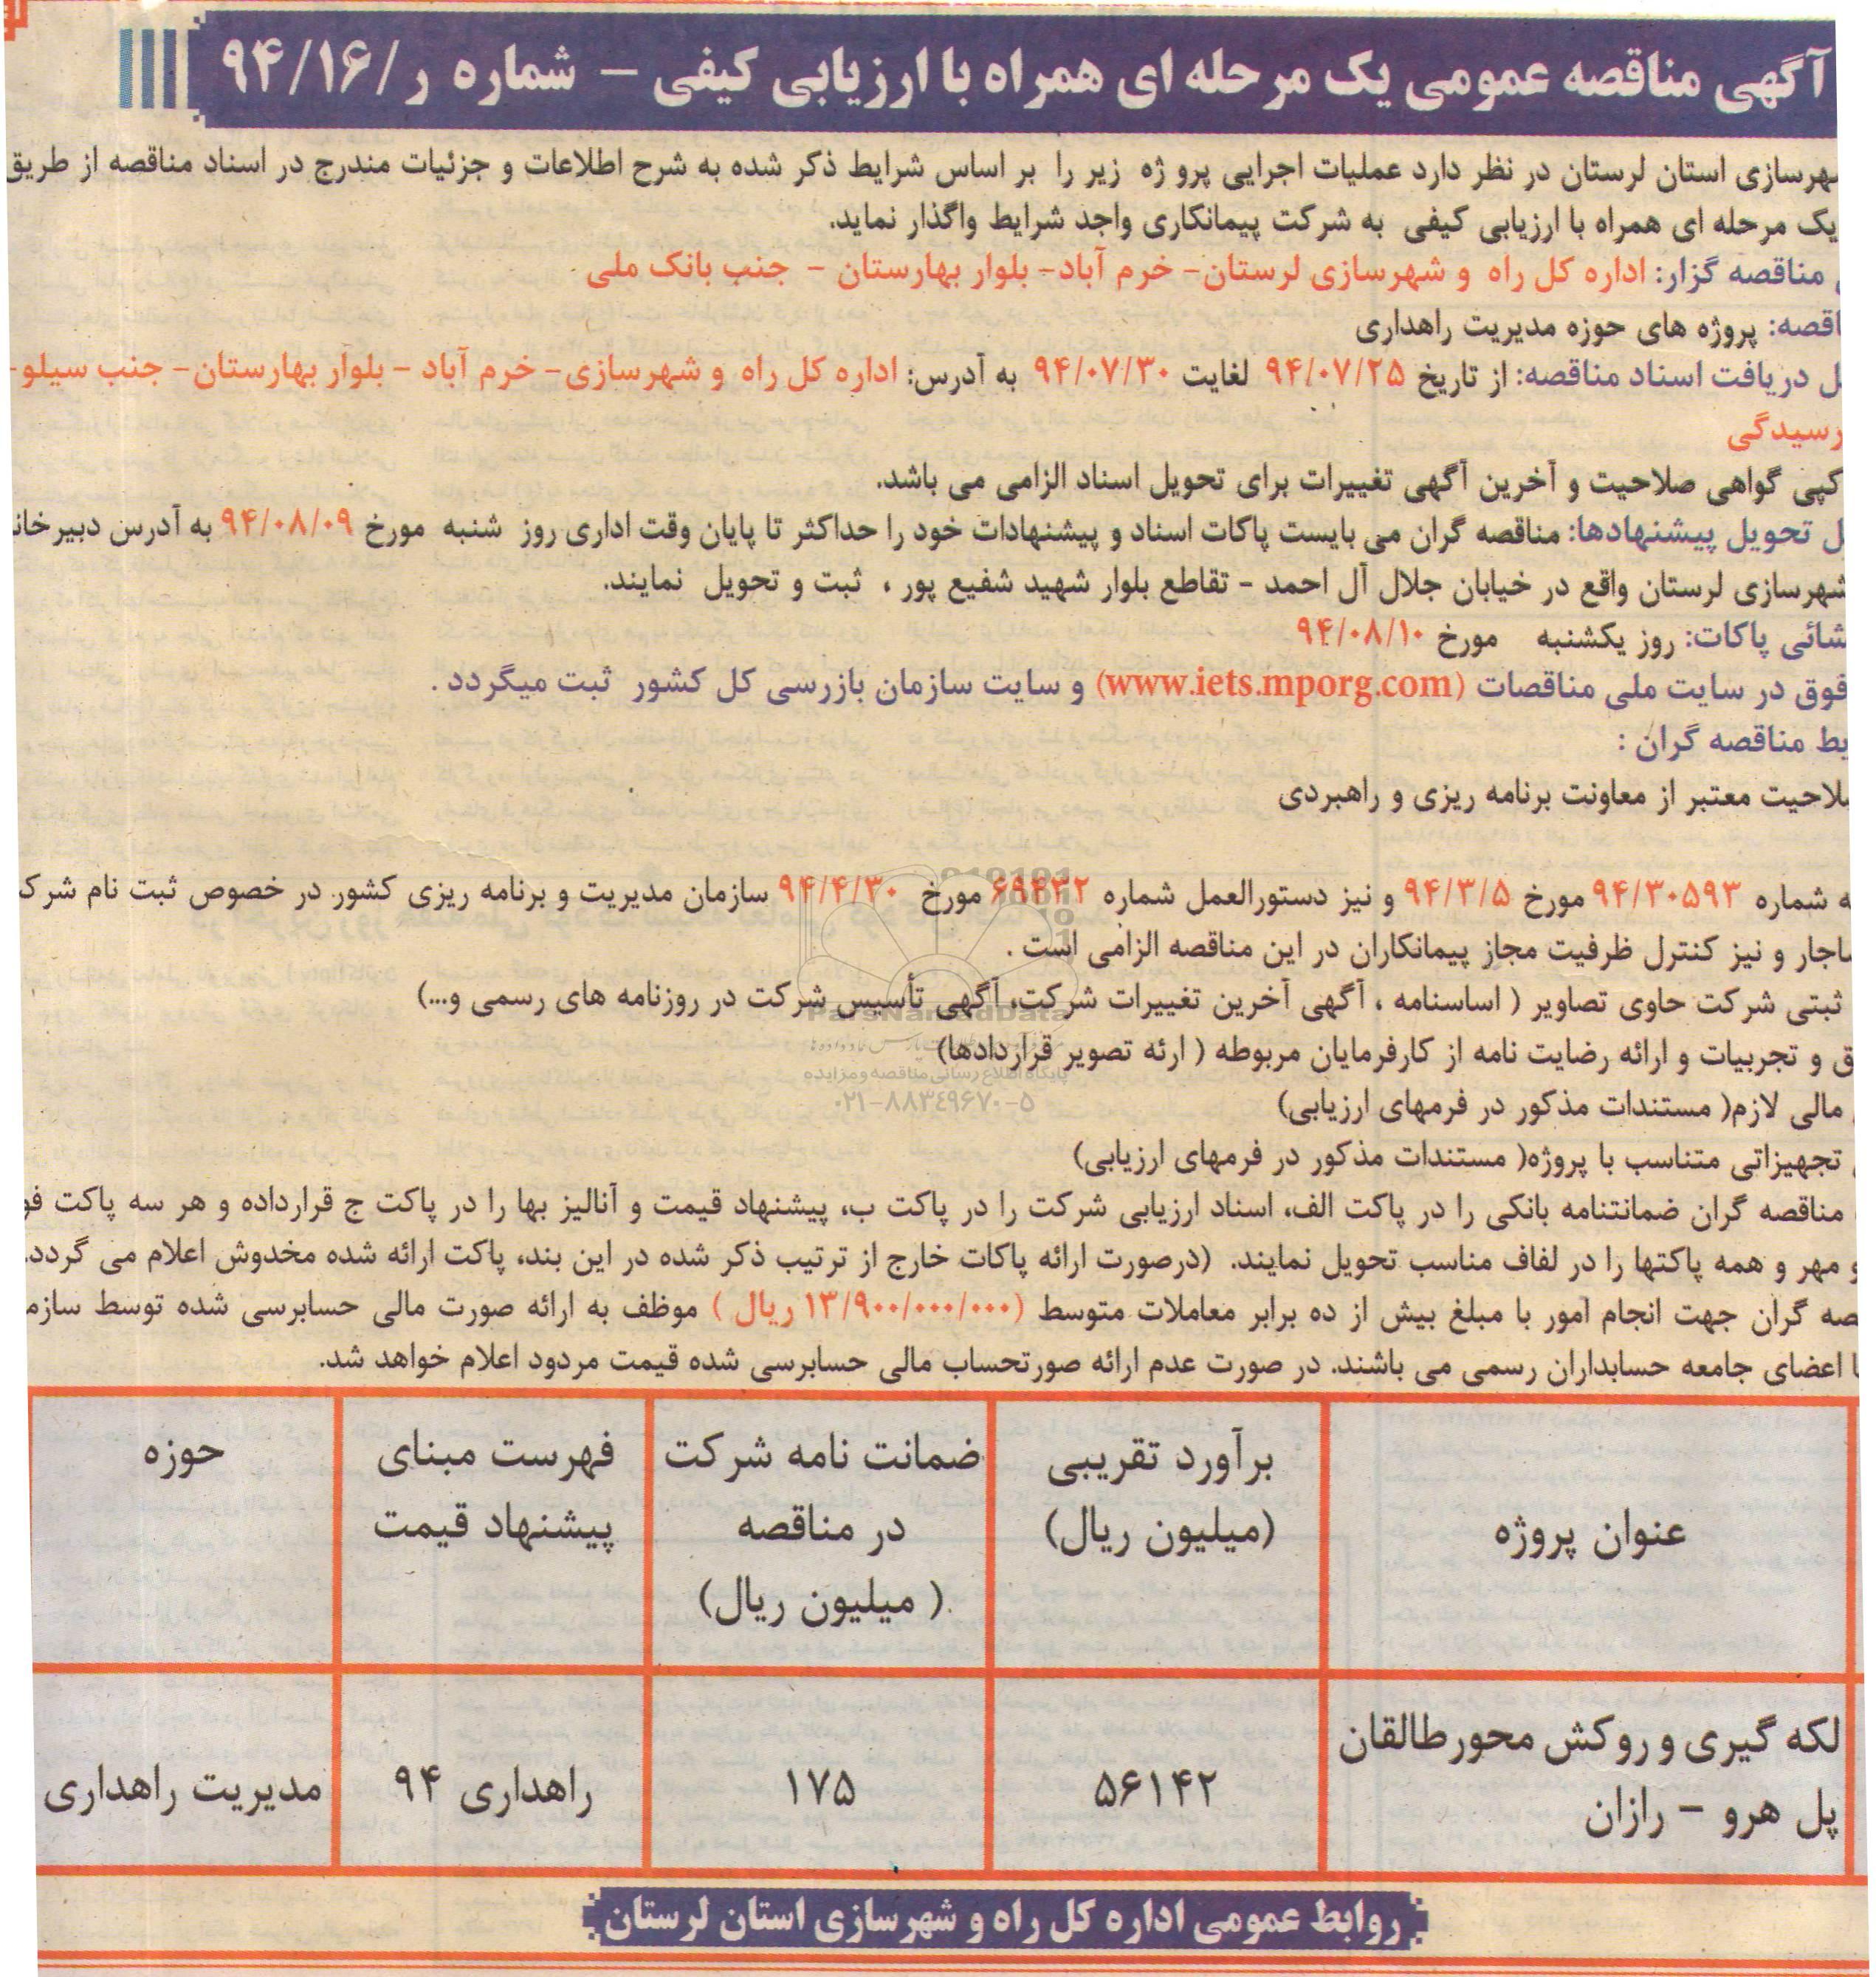 آگهی مناقصه عمومی یک مرحله ای همراه با ارزیابی کیفی – شماره ر/۹۴/۱۶
شهرسازی استان لرستان در نظر دارد عملیات اجرایی پرو ژه زیر را بر اساس شرایط ذکر شده به شرح اطلاعات و جزئیات مندرج در اسناد مناقصه از طریق
یک مرحله ای همراه با ارزیابی کیفی به شرکت پیمانکاری واجد شرایط واگذار نماید.
مناقصه گزار: اداره کل راه و شهرسازی لرستان- خرم آباد- بلوار بهارستان - جنب بانک ملی
اقصه: پروژه های حوزه مدیریت راهداری
ل دریافت اسناد مناقصه: از تاریخ ۹۴/۰۷/۲۵ لغایت ۹۴/۰۷/۳۰ به آدرس: اداره کل راه و شهرسازی- خرم آباد - بلوار بهارستان- جنب سیلو-
رسیدگی
کپی گواهی صلاحیت و آخرین آگهی تغییرات برای تحویل اسناد الزامی می باشد.
ل تحویل پیشنهادها: مناقصه گران می بایست پاکات اسناد و پیشنهادات خود را حداکثر تا پایان وقت اداری روز شنبه مورخ ۹۴/۰۸/۰۹ به آدرس دبیرخان
شهرسازی لرستان واقع در خیابان جلال آل احمد - تقاطع بلوار شهید شفیع پور ، ثبت و تحویل نمایند.
شائی پاکات: روز یکشنبه مورخ ۹۴/۰۸/۱۰
فوق در سایت ملی مناقصات (www.iets.mporg.com) و سایت سازمان بازرسی کل کشور ثبت میگردد .
یط مناقصه گران :
لاحیت معتبر از معاونت برنامه ریزی و راهبردی
ه شماره ۹۴/۳۰۵۹۳ مورخ ۹۴/۳/۵ و نیز دستورالعمل شماره ۶۹۴۳۲ مورخ ۹۴/۴/۳۰ سازمان مدیریت و برنامه ریزی کشور در خصوص ثبت نام شرک
ساجار و نیز کنترل ظرفیت مجاز پیمانکاران در این مناقصه الزامی است .
ثبتی شرکت حاوی تصاویر ( اساسنامه ، آگهی آخرین تغییرات شرکت، آگهی تأسیس شرکت در روزنامه های رسمی و...)
ParsNamadData
ق و تجربیات و ارائه رضایت نامه از کارفرمایان مربوطه ( ارئه تصویر قراردادها)
پایگاه اطلاع رسانی مناقصه و مزایده
۰۲۱-۸۸۳۴۹۶۷۰-۵
مالی لازم( مستندات مذکور در فرمهای ارزیابی)
تجهیزاتی متناسب با پروژه( مستندات مذکور در فرمهای ارزیابی)
مناقصه گران ضمانتنامه بانکی را در پاکت الف، اسناد ارزیابی شرکت را در پاکت ب، پیشنهاد قیمت و آنالیز بها را در پاکت ج قرارداده و هر سه پاکت فو
و مهر و همه پاکتها را در لفاف مناسب تحویل نمایند. (درصورت ارائه پاکات خارج از ترتیب ذکر شده در این بند، پاکت ارائه شده مخدوش اعلام می گردد.
صه گران جهت انجام امور با مبلغ بیش از ده برابر معاملات متوسط (۱۳/۹۰۰/۰۰۰/۰۰۰ ریال ) موظف به ارائه صورت مالی حسابرسی شده توسط سازم
ا اعضای جامعه حسابداران رسمی می باشند. در صورت عدم ارائه صورتحساب مالی حسابرسی شده قیمت مردود اعلام خواهد شد.
عنوان پروژه
برآورد تقریبی
(میلیون ریال)
ضمانت نامه شرکت
در مناقصه
( میلیون ریال)
فهرست مبنای
پیشنهاد قیمت
حوزه
لکه گیری و روکش محورطالقان
پل هرو – رازان
۵۶۱۴۲
۱۷۵
راهداری ۹۴
مدیریت راهداری
روابط عمومی اداره کل راه و شهرسازی استان لرستان